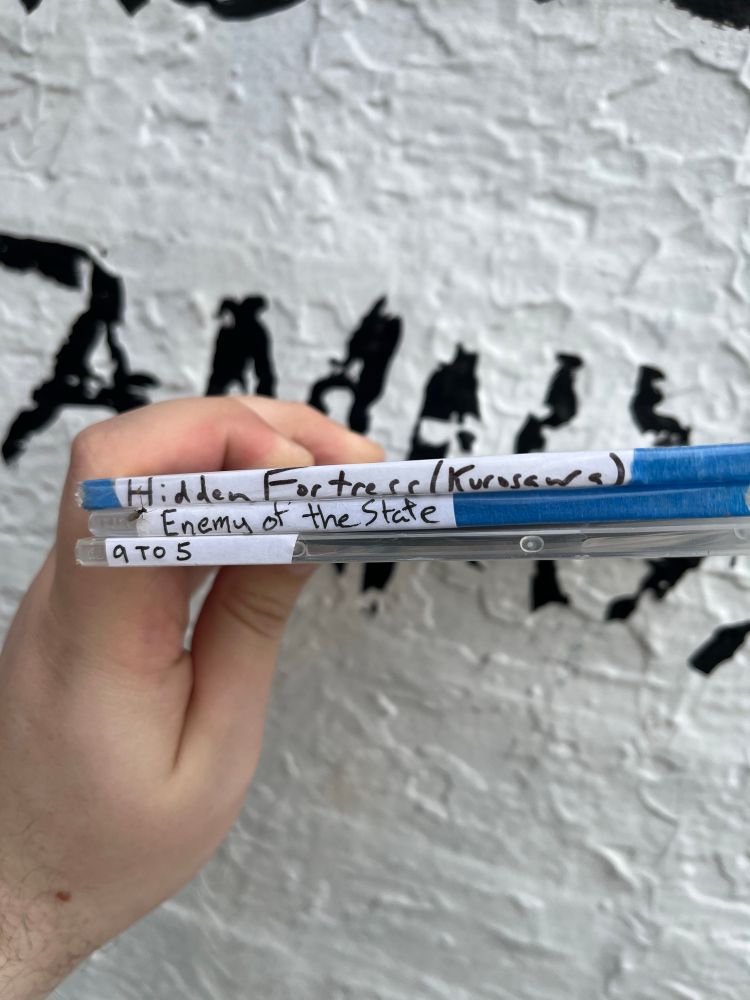 Hidden Fortress (Kurosawa)
Enemy of the State
9 TO 5